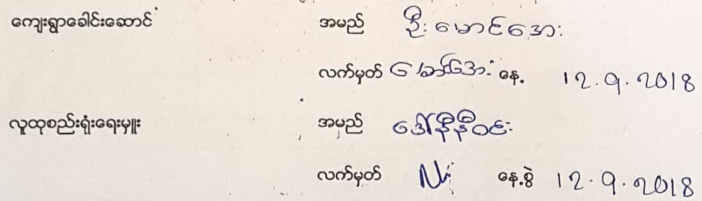 ကျေးရွာခေါင်းဆောင် အမည် ဦးမောင်အေး
လက်မှတ် မောင်အေး နေ့ 12.9.2018
လူထုစည်းရုံးရေးမှူး အမည် ဒေါ်နီနီဝင်း
လက်မှတ် နေ့စွဲ 12.9.2018